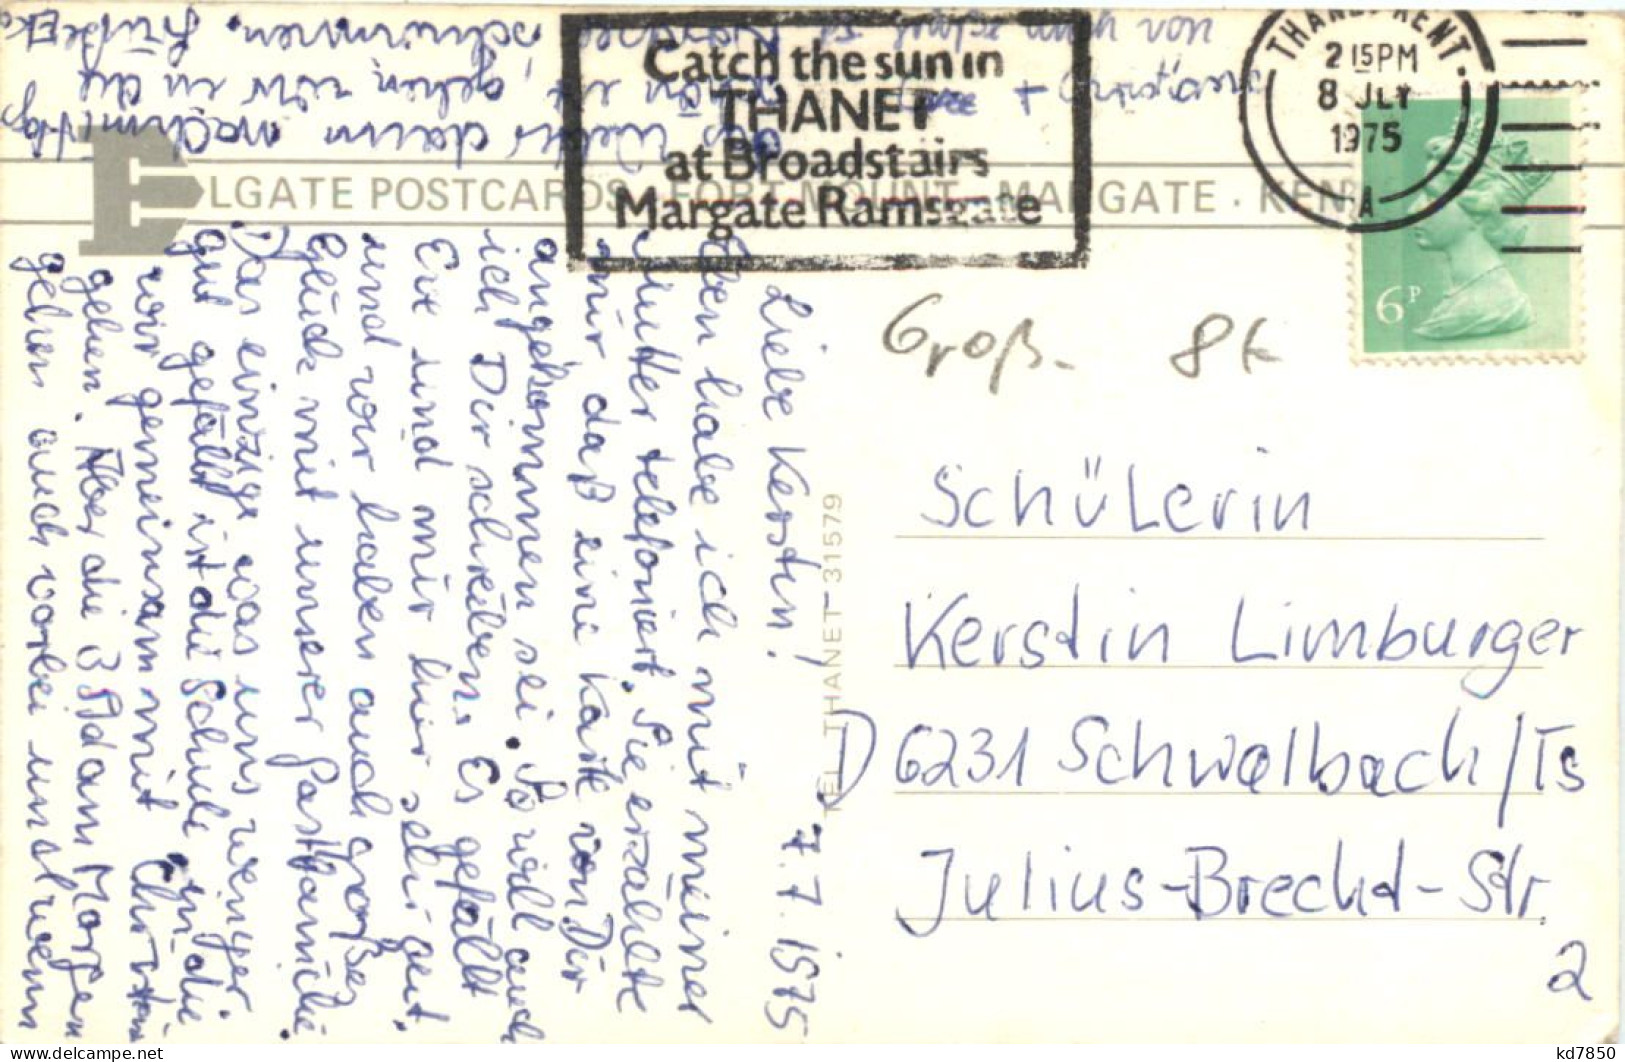 Catch the sun in
THANET
at Broadstairs
Margate Ramsgate
THANET KENT.
2 15 PM
8 JLY
1975
A
6P
ELGATE POSTCARDS · FORT MOUNT · MARGATE · KENT
TEL. THANET 31579
Groß- 8k
Schülerin
Kerstin Limburger
D 6231 Schwalbach/Ts
Julius-Brecht-Str.
2
7.7.1975
Liebe Kerstin!
Eben habe ich mit meiner
Mutter telefoniert. Sie erzählte
mir daß eine Karte von Dir
angekommen sei. So will auch
ich Dir schreiben. Es gefällt
Eve und mir hier sehr gut.
und wir haben auch großes
Glück mit unserer Gastfamilie.
Das einzige was uns weniger
gut gefällt ist die Schule in die
wir gemeinsam mit Christin
gehen. Aber die 3 Std am Morgen
gehen auch vorbei und wenn
das Wetter dann nachmittags
gehen wir in die
schwimmen.
von
+
kd7850